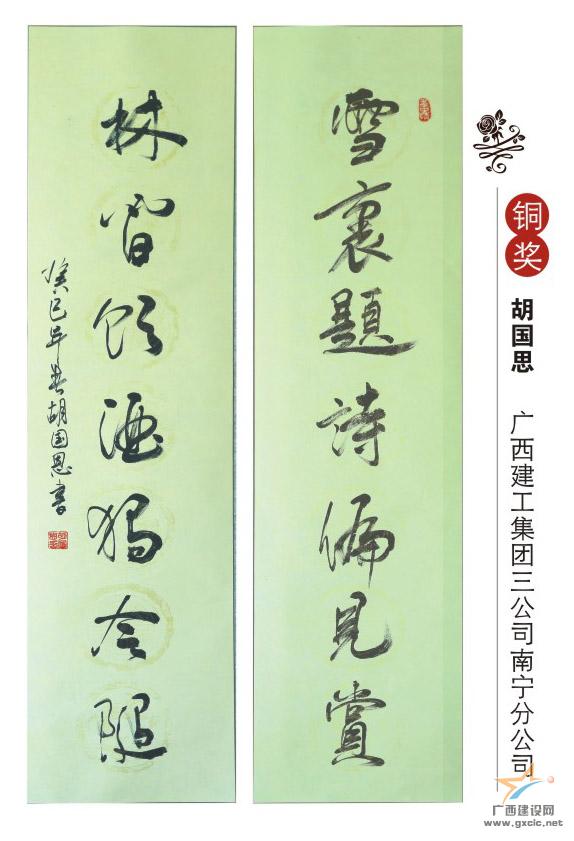 雪裏題詩偏見賞
林間飲酒獨令隨
癸巳年春胡国思書
铜奖
胡国思
广西建工集团三公司南宁分公司
广西建设网
www.gxcic.net